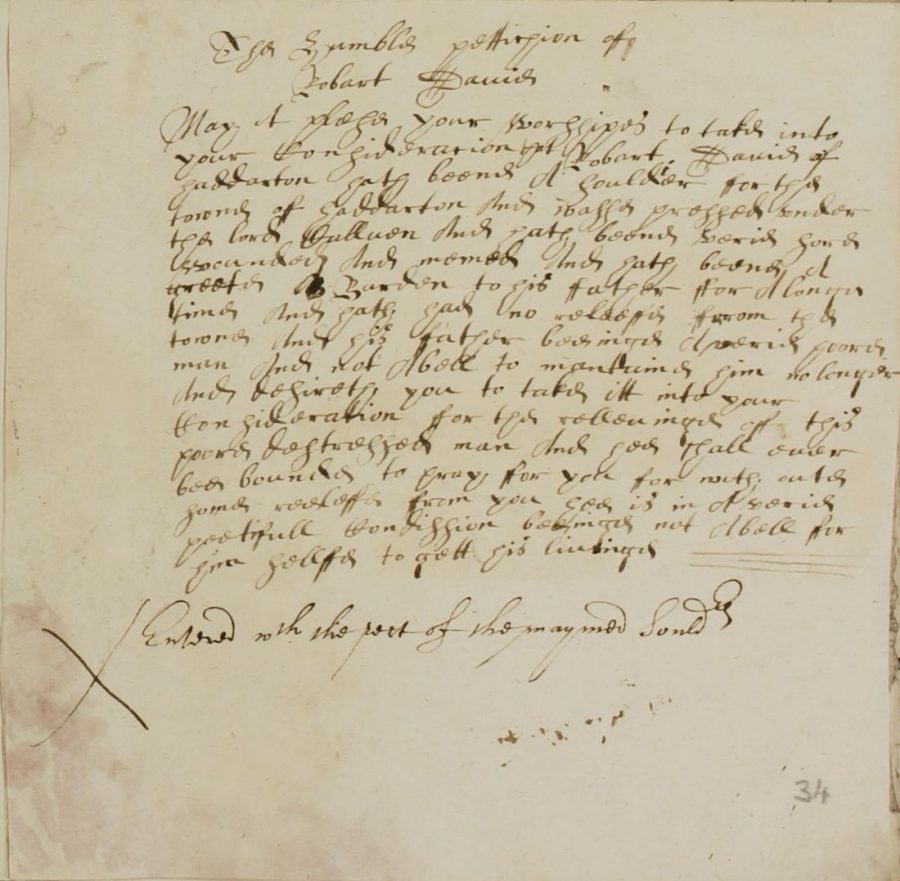 The Humble pettichion off
Robart Davies
May it please your Worshipes to take into
your Considderacion that Robart Davies of
Haddarton hath beene A souldier for the
towne of Haddarton And wasse pressed vnder
the lord And hath beene verie sore
wounded And memed And hath beene A
greete Burden to his father ffor A longe
time And hath had no releeffe from the
towne And his father beeinge A verie poore
man And not Abell to mantaine him no longer
And desireth you to take itt into your
Considderation for the relleuinge off this
poore destressed man And hee shall euer
bee bounde to pray for you for with oute
some releeffe from you hee is in A verie
peetifull Condission beeinge not Abell for
him sellffe to gett his liuinge
Entered wth the pet of the maymed Sould
34